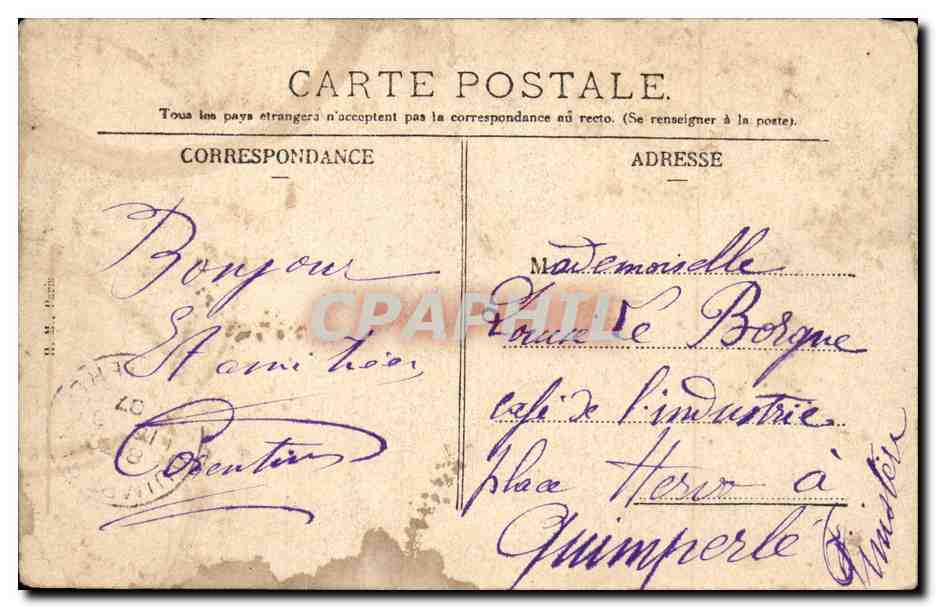 CARTE POSTALE.
Tous les pays étrangers n'acceptent pas la correspondance au recto. (Se renseigner à la poste).
CORRESPONDANCE
Bonjour
Et amitiées
Corentin
ADRESSE
Mademoiselle
Louise Le Borgne
café de l'industrie
place Hervo à
Quimperlé
Finistère
Paris
CPAPHIL
07